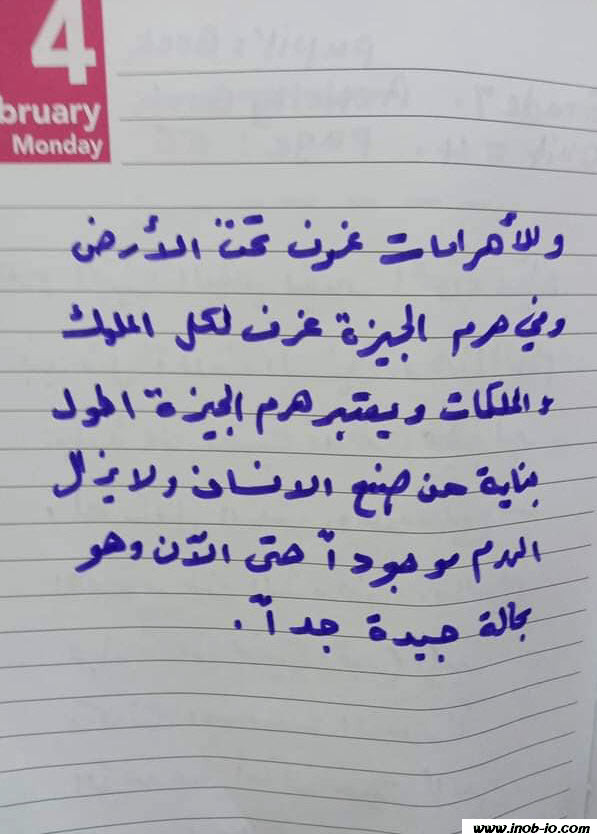 4
bruary
Monday
وللأهرامات غرف تحت الأرض
وفي هرم الجيزة غرف لكل الملوك
والملكات ويعتبر هرم الجيزة اطول
بناية من صنع الانسان ولا يزال
الهرم موجوداً حتى الآن وهو
بحالة جيدة جداً.
www.inob-io.com